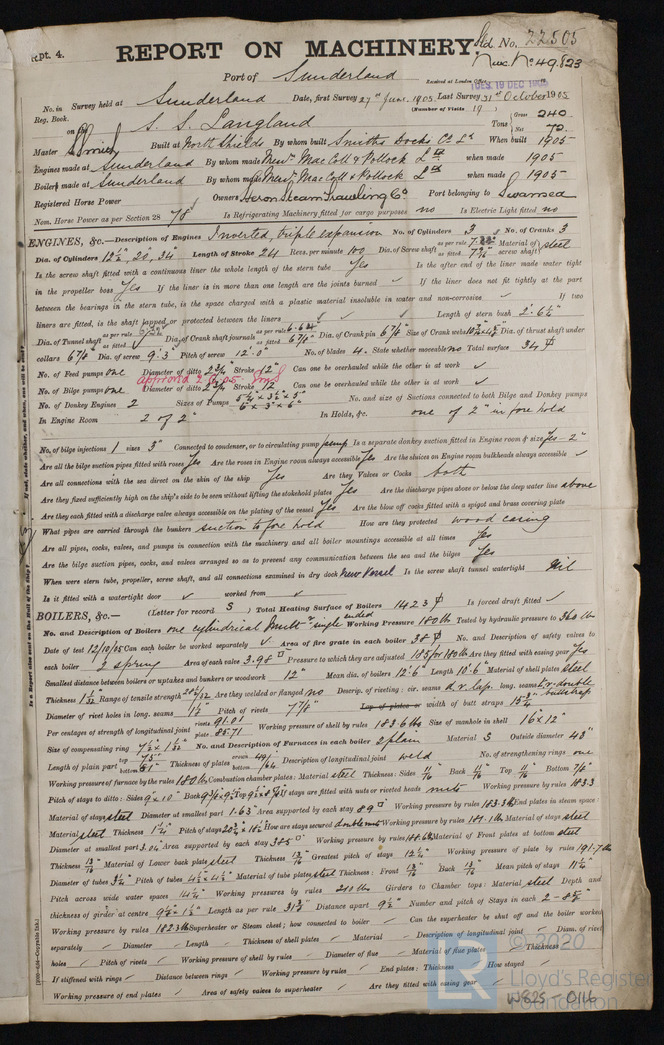 Rpt. 4.
REPORT ON MACHINERY.
Std. No. 22505
Nwc. No 49,823
Port of Sunderland
Received at London Office 19 DEC 1905
No. in Reg. Book. Survey held at Sunderland Date, first Survey 27th June 1905 Last Survey 31st October 1905
(Number of Visits 19)
on the S. S. Langland Tons Gross 240 Net 72
Master Built at North Shields By whom built Smiths Docks Co Ld When built 1905
Engines made at Sunderland By whom made Messrs Mac Coll & Pollock Ltd when made 1905
Boilers made at Sunderland By whom made Messrs Mac Coll & Pollock Ltd when made 1905
Registered Horse Power Owners Heron Steam Trawling Co Port belonging to Swansea
Nom. Horse Power as per Section 28 78 Is Refrigerating Machinery fitted for cargo purposes no Is Electric Light fitted no
ENGINES, &c.—Description of Engines Inverted, triple expansion No. of Cylinders 3 No. of Cranks 3
Dia. of Cylinders 12½", 20", 34" Length of Stroke 24 Revs. per minute 100 Dia. of Screw shaft as per rule as fitted Material of screw shaft steel
Is the screw shaft fitted with a continuous liner the whole length of the stern tube Yes Is the after end of the liner made water tight
in the propeller boss Yes If the liner is in more than one length are the joints burned ✓ If the liner does not fit tightly at the part
between the bearings in the stern tube, is the space charged with a plastic material insoluble in water and non-corrosive ✓ If two
liners are fitted, is the shaft lapped or protected between the liners ✓ Length of stern bush 2' 6½"
Dia. of Tunnel shaft as per rule as fitted Dia. of Crank shaft journals as per rule as fitted 6⅞" Dia. of Crank pin 6⅞" Size of Crank webs Dia. of thrust shaft under
collars 6⅞" Dia. of screw 9' 3" Pitch of screw 12' 0" No. of blades 4 State whether moveable no Total surface 34
No. of Feed pumps one Diameter of ditto 2¾" Stroke 12" Can one be overhauled while the other is at work ✓
No. of Bilge pumps one Diameter of ditto 2¾" Stroke 12 Can one be overhauled while the other is at work ✓
No. of Donkey Engines 2 Sizes of Pumps No. and size of Suctions connected to both Bilge and Donkey pumps
In Engine Room 2 of 2" In Holds, &c. one of 2" in fore hold
No. of bilge injections 1 sizes 3" Connected to condenser, or to circulating pump pump Is a separate donkey suction fitted in Engine room & size Yes - 2"
Are all the bilge suction pipes fitted with roses Yes Are the roses in Engine room always accessible Yes Are the sluices on Engine room bulkheads always accessible ✓
Are all connections with the sea direct on the skin of the ship Yes Are they Valves or Cocks both
Are they fixed sufficiently high on the ship's side to be seen without lifting the stokehold plates Yes Are the discharge pipes above or below the deep water line above
Are they each fitted with a discharge valve always accessible on the plating of the vessel Yes Are the blow off cocks fitted with a spigot and brass covering plate
What pipes are carried through the bunkers suction to fore hold How are they protected wood casing
Are all pipes, cocks, valves, and pumps in connection with the machinery and all boiler mountings accessible at all times Yes
Are the bilge suction pipes, cocks, and valves arranged so as to prevent any communication between the sea and the bilges Yes
When were stern tube, propeller, screw shaft, and all connections examined in dry dock New Vessel Is the screw shaft tunnel watertight Nil
Is it fitted with a watertight door ✓ worked from ✓
BOILERS, &c.— (Letter for record S) Total Heating Surface of Boilers 1423 Is forced draft fitted ✓
No. and Description of Boilers one cylindrical Multr single ended Working Pressure 180 lb Tested by hydraulic pressure to 360 lb
Date of test 12/10/05 Can each boiler be worked separately ✓ Area of fire grate in each boiler 38 No. and Description of safety valves to
each boiler 2 spring Area of each valve 3.98 Pressure to which they are adjusted 185 for 180 lb Are they fitted with easing gear Yes
Smallest distance between boilers or uptakes and bunkers or woodwork 12" Mean dia. of boilers 12' 6" Length 10' 6" Material of shell plates steel
Thickness 1 1/32 Range of tensile strength Are they welded or flanged no Descrip. of riveting: cir. seams d.r. lap. long. seams t.r. double buttstraps
Diameter of rivet holes in long. seams Pitch of rivets 7⅞" Lap of plates or width of butt straps 15¾"
Per centages of strength of longitudinal joint rivets 91.01 plate 85.71 Working pressure of shell by rules 183.6 lbs Size of manhole in shell 16" x 12"
Size of compensating ring 7½ x 1 1/32" No. and Description of Furnaces in each boiler 2 plain Material S Outside diameter 43"
Length of plain part top 75" bottom Thickness of plates crown bottom 49/64 Description of longitudinal joint weld No. of strengthening rings one
Working pressure of furnace by the rules 180 lbs Combustion chamber plates: Material steel Thickness: Sides 11/16 Back 11/16" Top 11/16" Bottom 7/8"
Pitch of stays to ditto: Sides 9 x 10" Back Top If stays are fitted with nuts or riveted heads nuts Working pressure by rules 183.3
Material of stays steel Diameter at smallest part 1.63" Area supported by each stay 89 Working pressure by rules 183.3 lb End plates in steam space:
Material steel Thickness 1¼" Pitch of stays How are stays secured double nuts Working pressure by rules 181.1 lb Material of stays steel
Diameter at smallest part 3.04 Area supported by each stay 385 Working pressure by rules 188.6 lb Material of Front plates at bottom steel
Thickness 13/16" Material of Lower back plate steel Thickness 13/16" Greatest pitch of stays 12¼" Working pressure of plate by rules 191.7 lb
Diameter of tubes 3¼" Pitch of tubes 4½ x 4½" Material of tube plates steel Thickness: Front 13/16" Back 13/16" Mean pitch of stays 11¼"
Pitch across wide water spaces 14¼" Working pressures by rules 210 lbs Girders to Chamber tops: Material steel Depth and
thickness of girder at centre 9½ x 1½" Length as per rule 31¾" Distance apart 9½" Number and pitch of Stays in each 2 - 8⅝"
Working pressure by rules 182.3 lb Superheater or Steam chest; how connected to boiler ✓ Can the superheater be shut off and the boiler worked
separately Diameter Length Thickness of shell plates Material Description of longitudinal joint Diam. of rivet
holes Pitch of rivets Working pressure of shell by rules Diameter of flue Material of flue plates Thickness
If stiffened with rings Distance between rings Working pressure by rules End plates: Thickness How stayed
Working pressure of end plates Area of safety valves to superheater Are they fitted with easing gear
© 2020
Lloyd's Register
Foundation
W825-0116